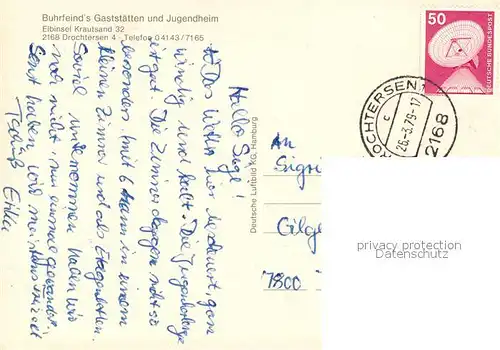 Buhrfeind's Gaststätten und Jugendheim
Elbinsel Krautsand 32
2168 Drochtersen 4 - Telefon 04143/7165
Hallo Sigi!
Das Wetter hier ist ganz
windig und kalt. Die Jugendherberge
ist gut. Die Zimmer dagegen nicht so
besonders. (mit 6 Mann in einem
kleinen Zimmer und als Etagenbetten.
Soviel unternommen haben wir
noch nicht, nur einmal gewandert.
Sonst haben wir meistens Freizeit
Tschüß Erika
Deutsche Luftbild KG, Hamburg
An
Sigri
7800
50
DEUTSCHE BUNDESPOST
DROCHTERSEN 1
c
26.-3.79-17
2168
privacy protection
Datenschutz